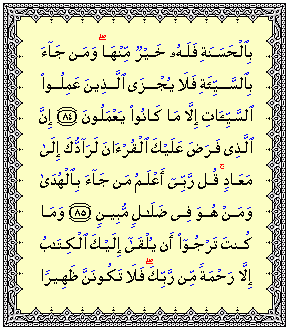 بِٱلۡحَسَنَةِ فَلَهُۥ خَيۡرٞ مِّنۡهَاۖ وَمَن جَآءَ
بِٱلسَّيِّئَةِ فَلَا يُجۡزَى ٱلَّذِينَ عَمِلُواْ
ٱلسَّيِّـَٔاتِ إِلَّا مَا كَانُواْ يَعۡمَلُونَ ٨٤ إِنَّ
ٱلَّذِي فَرَضَ عَلَيۡكَ ٱلۡقُرۡءَانَ لَرَآدُّكَ إِلَىٰ
مَعَادٖۚ قُل رَّبِّيٓ أَعۡلَمُ مَن جَآءَ بِٱلۡهُدَىٰ
وَمَنۡ هُوَ فِي ضَلَٰلٖ مُّبِينٖ ٨٥ وَمَا
كُنتَ تَرۡجُوٓاْ أَن يُلۡقَىٰٓ إِلَيۡكَ ٱلۡكِتَٰبُ
إِلَّا رَحۡمَةٗ مِّن رَّبِّكَۖ فَلَا تَكُونَنَّ ظَهِيرٗا